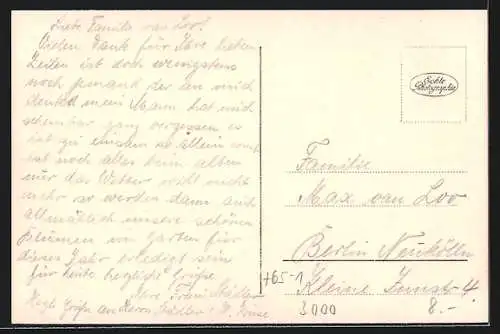 Liebe Familie van Loo!
Vielen Dank für Ihre lieben
Zeilen ist doch wenigstens
noch jemand der an mich
denkt mein Mann hat mich
scheinbar ganz vergessen es
ist zu einsam so allein
ist noch alles beim alten
nur das Wetter will nicht
mehr so werden dann auch
allmählich unsere schönen
Blumen im Garten für
dieses Jahr erledigt sein
für heute herzliche Grüße
Ihre Frau Städler
Herzl Grüße an Herrn Städler
Echte
Photographie
Familie
Max van Loo
Berlin Neukölln
Kleine Innstr 4.
+65-1
3000
8.-